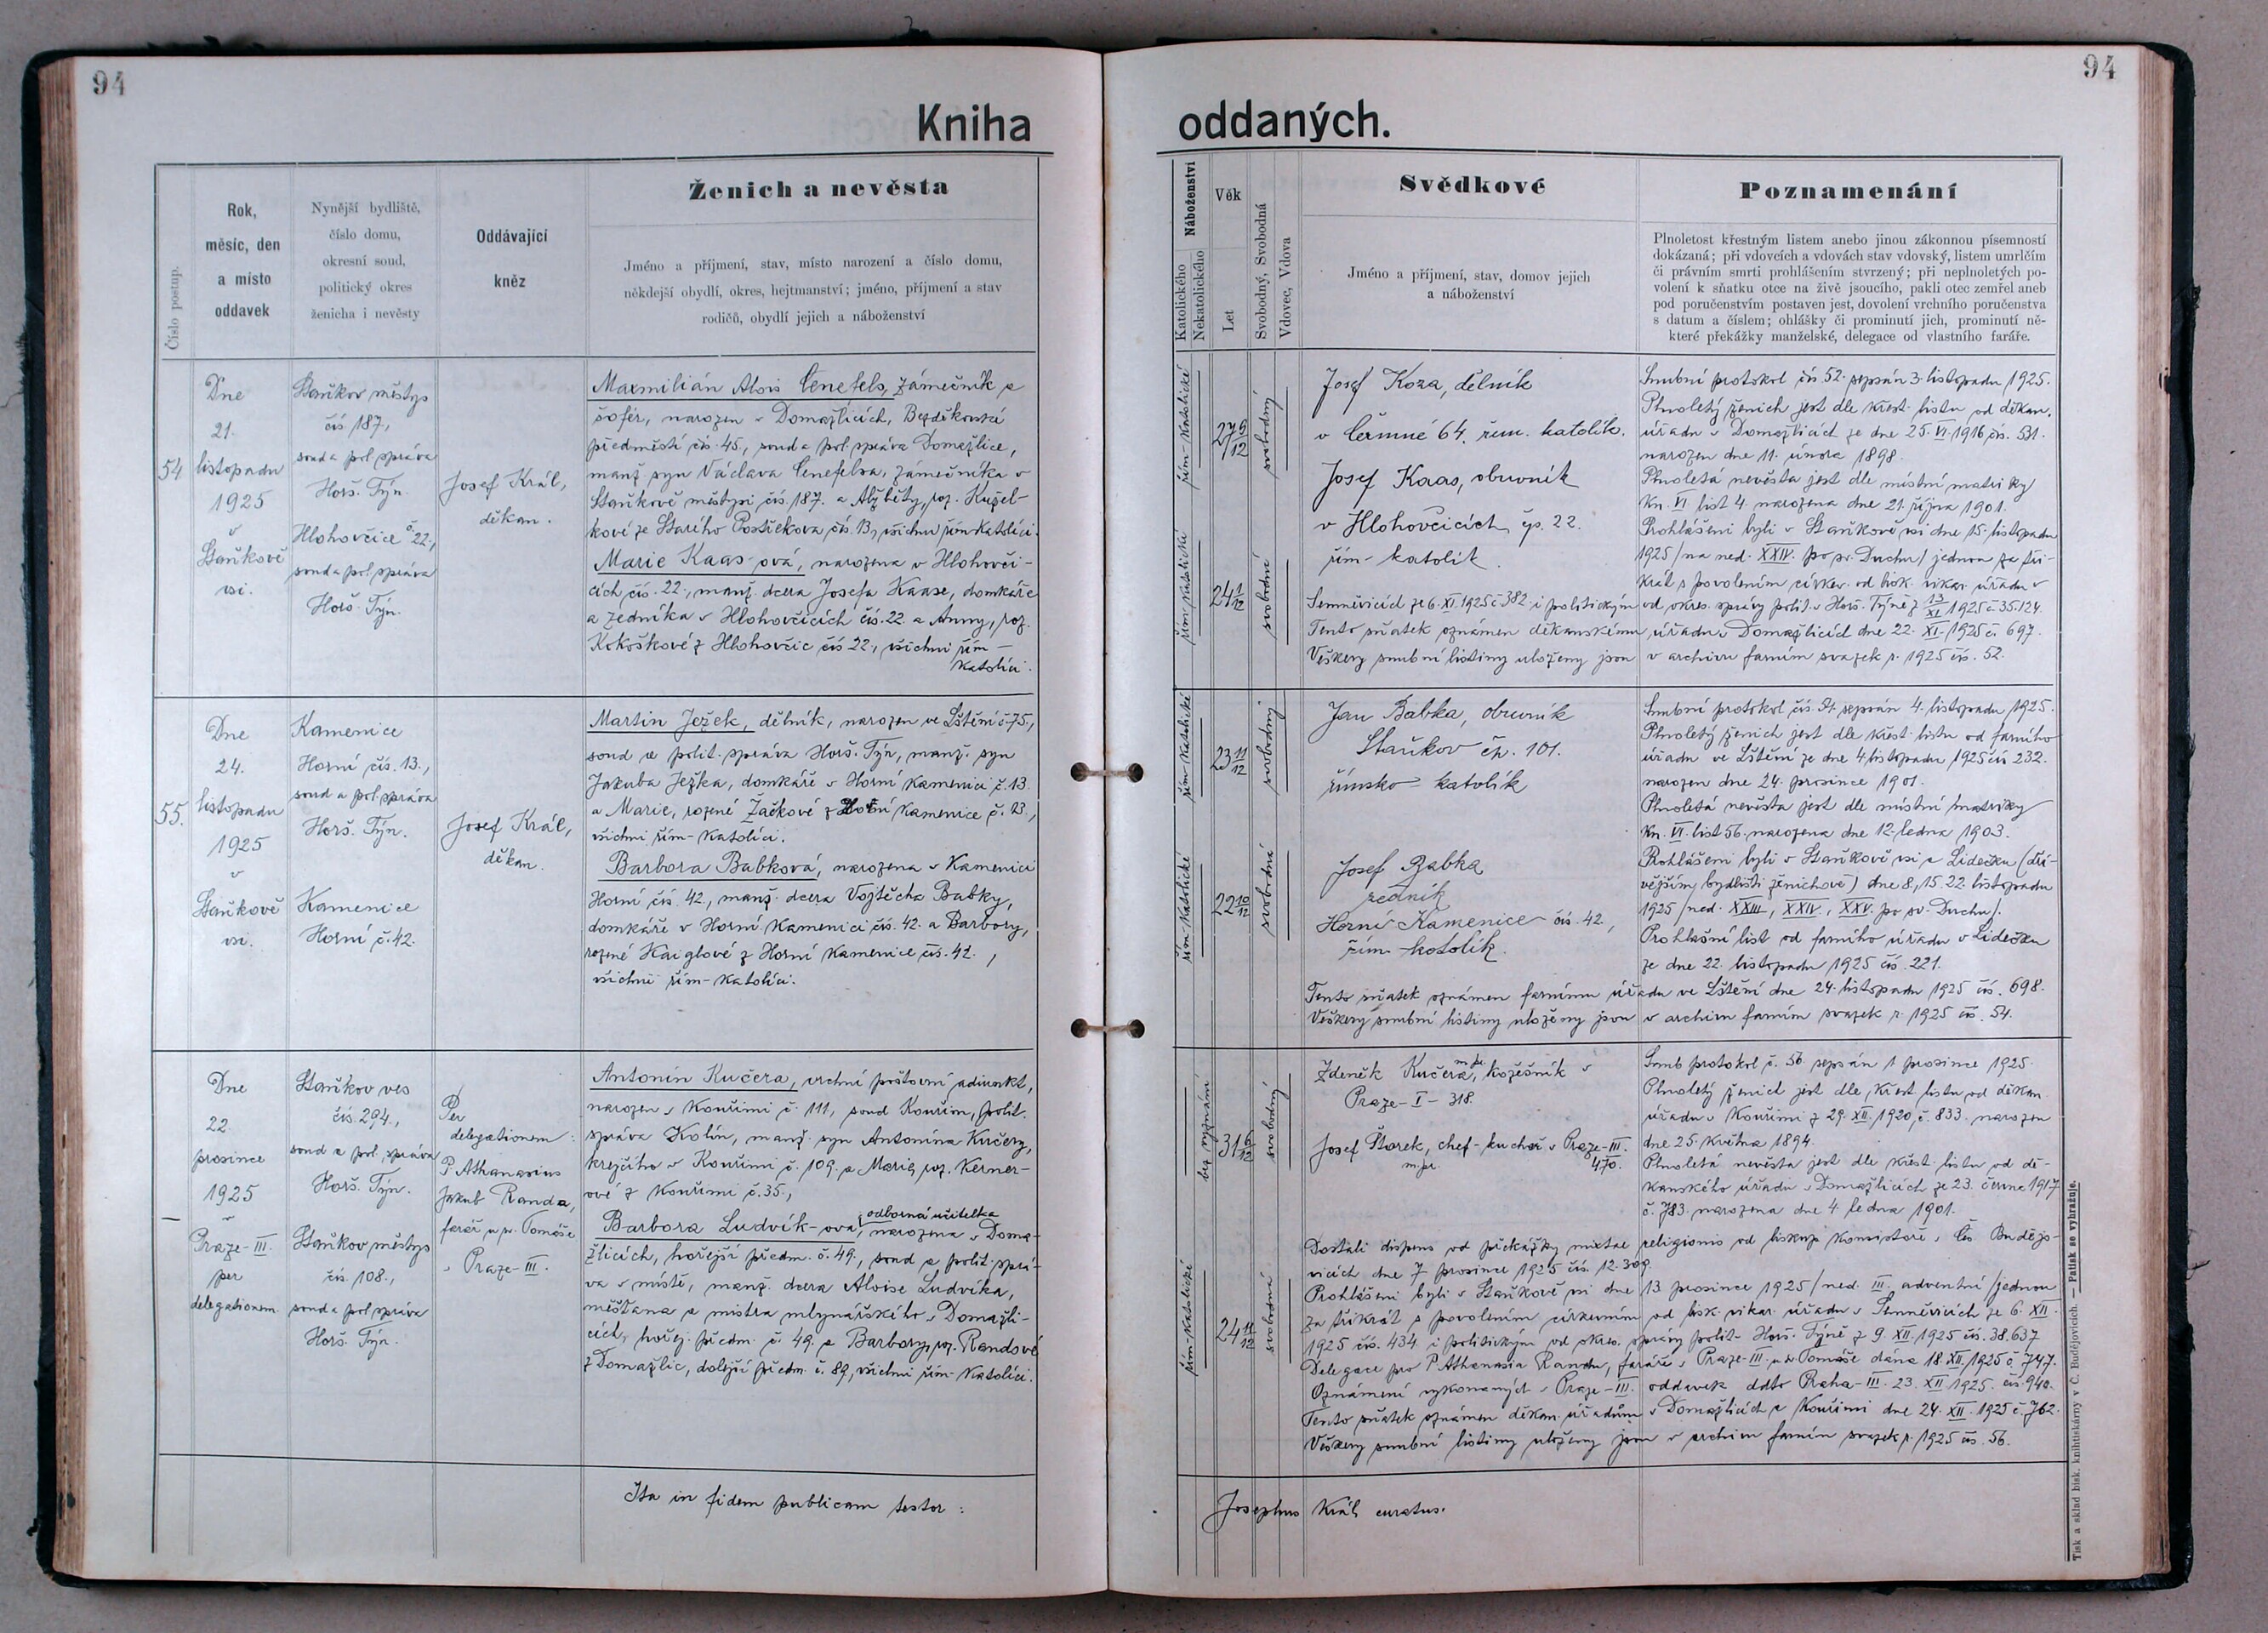 94
94
Kniha
oddaných.
Číslo postup.
Rok,
měsíc, den
a místo
oddavek
Nynější bydliště,
číslo domu,
okresní soud,
politický okres
ženicha i nevěsty
Oddávající
kněz
Ženich a nevěsta
Jméno a příjmení, stav, místo narození a číslo domu,
někdejší obydlí, okres, hejtmanství; jméno, příjmení a stav
rodičů, obydlí jejich a náboženství
Náboženství
Katolického
Nekatolického
Věk
Let
Svobodný, Svobodná
Vdovec, Vdova
Svědkové
Jméno a příjmení, stav, domov jejich
a náboženství
Poznamenání
Plnoletost křestným listem anebo jinou zákonnou písemností
dokázaná; při vdovcích a vdovách stav vdovský, listem umrlčím
či právním smrti prohlášením stvrzený; při neplnoletých po-
volení k sňatku otce na živě jsoucího, pakli otec zemřel aneb
pod poručenstvím postaven jest, dovolení vrchního poručenstva
s datum a číslem; ohlášky či prominutí jich, prominutí ně-
které překážky manželské, delegace od vlastního faráře.
54
Dne
21.
listopadu
1925
v
Staňkově
vsi.
Staňkov městys
čís. 187,
soud a pol. správa
Horš. Týn.
Hlohovčice č. 22,
soud a pol. správa
Horš. Týn.
Josef Král,
děkan.
Maxmilián Alois Cenefels, zámečník a
šofér, narozen v Domažlicích, Bezděkovské
předměstí čís. 45, soud a pol. správa Domažlice,
manž. syn Václava Cenefelsa, zámečníka v
Staňkově městysi čís. 187. a Alžběty, roz. Kužel-
kové ze Starého Postřekova čís. 13, všichni řím. katolíci.
Marie Kaas-ová, narozena v Hlohovči-
cích čís. 22, manž. dcera Josefa Kaase, domkáře
a zedníka v Hlohovčicích čís. 22 a Anny, roz.
Kokoškové z Hlohovčic čís 22, všichni řím-
katolíci.
řím-katolické
27 9/12
svobodný
řím-katolické
24 1/12
svobodná
Josef Koza, dělník
v Čermné 64. řím. katolík.
Josef Kaas, obuvník
v Hlohovčicích čp. 22.
řím-katolík.
Smubní protokol čís. 52. sepsán 3. listopadu 1925.
Plnoletý ženich jest dle křest. listu od děkan.
úřadu v Domažlicích ze dne 25. VI. 1916 čís. 531.
narozen dne 11. února 1898.
Plnoletá nevěsta jest dle místní matriky
kn. VI list 4. narozena dne 21. října 1901.
Prohlášeni byli v Staňkově vsi dne 15. listopadu
1925 /na ned. XXIV. po sv. Duchu/ jednou za tři-
krát s povolením církev. od bisk. vikar. úřadu v
Semněvicích ze 6. XI. 1925 č. 382 i politickým od okres. správy polit. v Horš. Týně z 13/XI 1925 č. 35.124.
Tento sňatek oznámen děkanskému úřadu v Domažlicích dne 22. XI. 1925 č. 697.
Veškery smubní listiny uloženy jsou v archivu farním svazek r. 1925 čís. 52.
55.
Dne
24.
listopadu
1925
v
Staňkově
vsi.
Kamenice
Horní čís. 13.,
soud a pol. správa
Horš. Týn.
Kamenice
Horní č. 42.
Josef Král,
děkan.
Martin Ježek, dělník, narozen ve Lštění č. 75.,
soud a polit. správa Horš. Týn, manž. syn
Jakuba Ježka, domkáře v Horní Kamenici č. 13
a Marie, rozené Žačkové z Horní Kamenice č. 13.,
všichni řím-katolíci.
Barbora Babková, narozena v Kamenici
Horní čís. 42., manž. dcera Vojtěcha Babky,
domkáře v Horní Kamenici čís. 42. a Barbory,
rozené Kaiglové z Horní Kamenice čís. 42.,
všichni řím-katolíci.
řím-katolické
23 11/12
svobodný
řím-katolické
22 10/12
svobodná
Jan Babka, obuvník
Staňkov čp. 101.
římsko-katolík
Josef Babka
zedník
Horní Kamenice čís. 42,
řím-katolík.
Smubní protokol čís. 54 sepsán 4. listopadu 1925.
Plnoletý ženich jest dle křest. listu od farního
úřadu ve Lštění ze dne 4. listopadu 1925 čís 232.
narozen dne 24. prosince 1901.
Plnoletá nevěsta jest dle místní matriky
kn. VI. list 56. narozena dne 12. ledna 1903.
Prohlášeni byli v Staňkově vsi a Lidečku (dří-
vějším bydlišti ženichově) dne 8, 15. 22. listopadu
1925 /ned. XXIII, XXIV., XXV. po sv. Duchu/.
Prohlašní list od farního úřadu v Lidečku
ze dne 22. listopadu 1925 čís. 221.
Tento sňatek oznámen farnímu úřadu ve Lštění dne 24. listopadu 1925 čís. 698.
Veškery smubní listiny uloženy jsou v archivu farním svazek r. 1925 čís. 54.
Dne
22.
prosince
1925
v
Praze-III.
per
delegationem.
Staňkov ves
čís. 294,
soud a pol. správa
Horš. Týn.
Staňkov městys
čís. 108.,
soud a pol správa
Horš. Týn.
Per
delegationem:
P. Athanasius
Jakub Randa,
farář u sv. Tomáše
v Praze-III.
Antonín Kučera, vrchní poštovní adjunkt,
narozen v Kouřimi č. 111, soud Kouřim, polit.
správa Kolín, manž. syn Antonína Kučery,
krejčího v Kouřimi č. 109. a Marie, roz. Kerner-
ové z Kouřimi č. 35.,
odborná učitelka
Barbora Ludvík-ova, narozena v Doma-
žlicích, hořejší předm. č. 49., soud a polit. sprá-
va v místě, manž. dcera Aloise Ludvíka,
měšťana a mistra mlynářského v Domažli-
cích, hořej. předm. č. 49. a Barbory, roz. Randové
z Domažlic, dolejší předm. č. 89, všichni řím-katolíci.
bez vyznání
31 6/12
svobodný
řím-katolické
24 11/12
svobodná
Zdeněk Kučera, m.p. kožešník v
Praze-I-318.
Josef Štorek, chef-kuchař v Praze-III.
m.p. 470.
Smub protokol č. 56 sepsán 1 prosince 1925
Plnoletý ženich jest dle křest. listu od děkan
úřadu v Kouřimi z 29. XII. 1920, č. 833. narozen
dne 25. května 1894.
Plnoletá nevěsta jest dle křest. listu od dě-
kanského úřadu v Domažlicích ze 23. června 1917
č. 783. narozena dne 4 ledna 1901.
Dostali dispens od překážky mixtae religionis od biskup. konsistoře v Čes. Budějo-
vicích dne 7 prosince 1925 čís. 12.309.
Prohlášeni byli v Staňkově vsi dne 13 prosince 1925 /ned. III. adventní/ jednou
za třikrát s povolením církevním od bisk. vikar. úřadu v Semněvicích ze 6. XII.
1925 čís. 434. i politickým od okres. správy polit. Horš. Týně z 9. XII. 1925 čís. 38.637
Delegace pro P. Athanasia Randu, faráře v Praze-III. u sv. Tomáše dána 18. XII. 1925 č. 747.
Oznámení vykonaných v Praze-III. oddavek ddto Praha-III. 23. XII 1925. čís. 940.
Tento sňatek oznámen děkan. úřadům v Domažlicích a Kouřimi dne 24. XII. 1925 č. 762.
Veškery smubní listiny uloženy jsou v archivu farním svazek r. 1925 čís. 56.
Ita in fidem publicam testor:
Josephus Král, curatus.
Tisk a sklad bisk. knihtiskárny v Č. Budějovicích. — Patisk se vyhražuje.